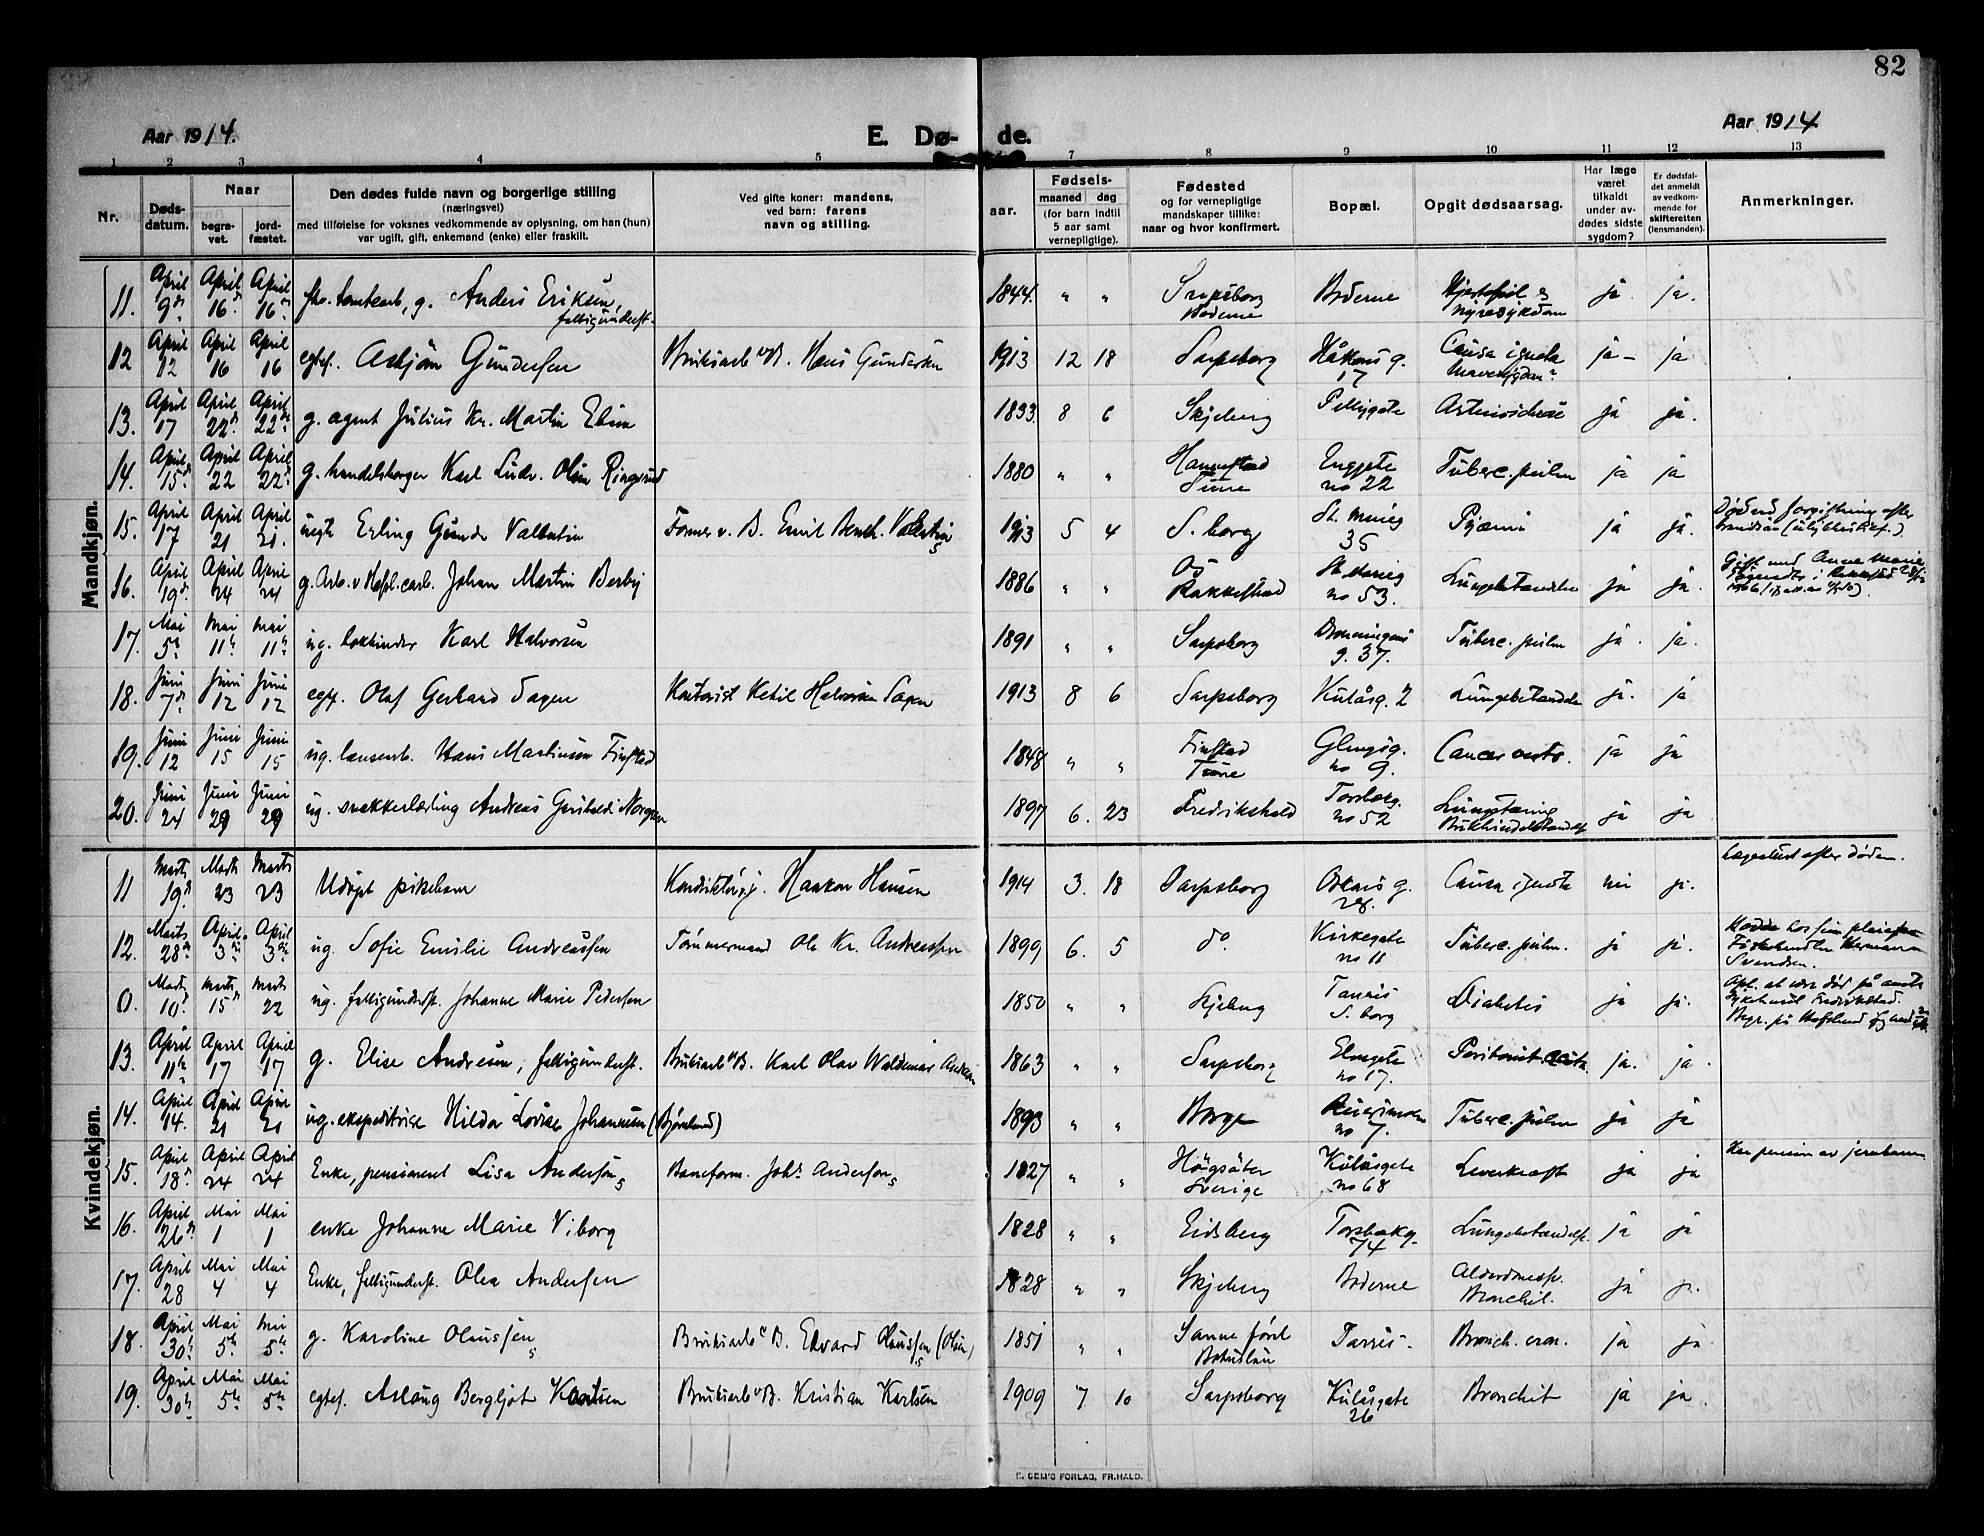 82
Aar 1914.
E. Dø-
de.
Aar 1914
1 2 3 4 5 7 8 9 10 11 12 13
Nr.
Døds-
datum.
Naar
begra-
vet.
jord-
fæstet.
Den dødes fulde navn og borgerlige stilling
(næringsvei)
med tilføielse for voksnes vedkommende av oplysning, om han (hun)
var ugift, gift, enkemand (enke) eller fraskilt.
Ved gifte koner: mandens,
ved barn: farens
navn og stilling.
aar.
Fødsels-
maaned dag
(for barn indtil
5 aar samt
vernepligtige).
Fødested
og for vernepligtige
mandskaper tillike:
naar og hvor konfirmert.
Bopæl.
Opgit dødsaarsag.
Har læge
været
tilkaldt
under av-
dødes sidste
sygdom?
Er dødsfal-
det anmeldt
av vedkom-
mende for
skifteretten
(lensmanden).
Anmerkninger.
Mandkjøn.
11. April 9de April 16de April 16de g. Anders Eriksen, fattigunderst. 1844. " " Borgerne ja. ja.
12 April 12 April 16 April 16 egtef. Asbjørn Gundersen Bruksarb. v/B. Hans Gundersen 1913 12 18 Sarpsborg Håkons g. 17 Causa ignota ja – ja
13. April 17 April 22de April 22de g. agent Julius Kr. Martin 1833. 8 6 Skjeberg ja ja.
14. April 15de April 22 April 22de g. Karl Ludv. Olsen Ringsrud 1880 " " Tune Enggate no 22 Tuberc. pulm ja ja
15. April 17 April 21 April 21. uegte Erling Gunder Valentin v. B. Emil Valentin 1913 5 4 S.borg St. Marieg 35 Pyæmi ja ja. Død av forgiftning efter
16. April 19de April 24 April 24 g. Arb. v Johan Martin Berby 1886 " " Os Rakkestad St. Marieg no 53. Lungebetændelse ja ja. Gift med Anne Marie
17. Mai 5te Mai 11te Mai 11te ug. Karl Halvorsen 1891 " " Sarpsborg Dronningens g. 37. Tuberc. pulm ja. ja.
18. Juni 7de Juni 12 Juni 12 egtf. Olaf Gerhard Sagen Kontorist Ketil Halvorsen Sagen 1913 8 6 Sarpsborg Kulåsg. 2 Lungebetændelse ja. ja
19. Juni 12 Juni 15 Juni 15 ug. Hans Martinsen Finstad 1848 " " Finstad Tune Glengsg. no 9. Cancer ja ja
20. Juni 24 Juni 29 Juni 29 ug. snekkerlærling Andreas Norgren 1897 6. 23 Fredrikshald Torsbæg. no 52 Lungetæring ja ja
Kvindekjøn.
11 Marts 19de Marts 23 Marts 23 Udøpt pikebarn Haakon Hansen 1914 3. 18 Sarpsborg Oskars g. 28. Causa ignota nei ja. efter døden.
12. Marts 28de April 3die April 3die ug. Sofie Emilie Andreassen Tømmermand Ole Kr. Andreassen 1899 6. 5 do. Kirkegate no 11 Tuberc. pulm. ja ja. hos sin pleiefar Herman Svendsen.
0. Marts 10de Marts 15de Marts 22 ug. fattigunderst. Johanne Marie Pedersen 1850 " " Skjeberg S.borg Diabetes ja ja. Opl. at være død på amts Sykehuset Fredrikstad. Begr. på Hafslund
13. April 11te April 17 April 17 g. Elise Andresen, fattigunderst. Bruksarb v/B. Karl Olav Waldemar Andresen 1863 " " Sarpsborg no 17. Peritonit ja. ja
14. April 14. April 21 April 21 ug. ekspeditrice Hilda Lovise Johannesen (Bjørnland) 1893 " " Borge no 7. Tuberc. pulm ja ja
15. April 18de April 24 April 24 Enke, pensioneret Lisa Anderson Baneform. Johs Anderson 1827 " " Högsäter Sverige Kulåsgate no 68 Leverkræft ja ja Har pension av jernbanen
16. April 26de Mai 1 Mai 1 enke Johanne Marie Viborg 1828 " " Eidsberg Torsbækg. 74 Lungebetændelse. ja ja
17. April 28 Mai 4 Mai 4 Enke, fattigunderst. Olea Andersen 1828 " " Skjeberg Borgerne Bronchit. ja ja.
18. April 30te Mai 5te Mai 5te g. Karoline Olaussen Bruksarb v B. Edvard Olaussen (Olsen) 1851 " " Sanne Bohuslän Bronch. cron. ja ja
19. April 30te Mai 5te Mai 5te egtef. Aslaug Bergljot Karlsen Bruksarb v/B. Kristian Karlsen 1909 7 10 Sarpsborg Kulåsgate 26 Bronchit ja ja.
E. SEM'S FORLAG, FR.HALD.